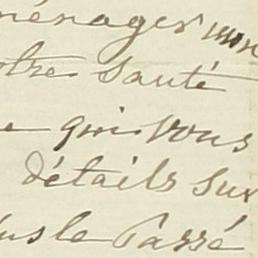 ménager mon
otre santé
e qui vous
détails sur
us le Passé